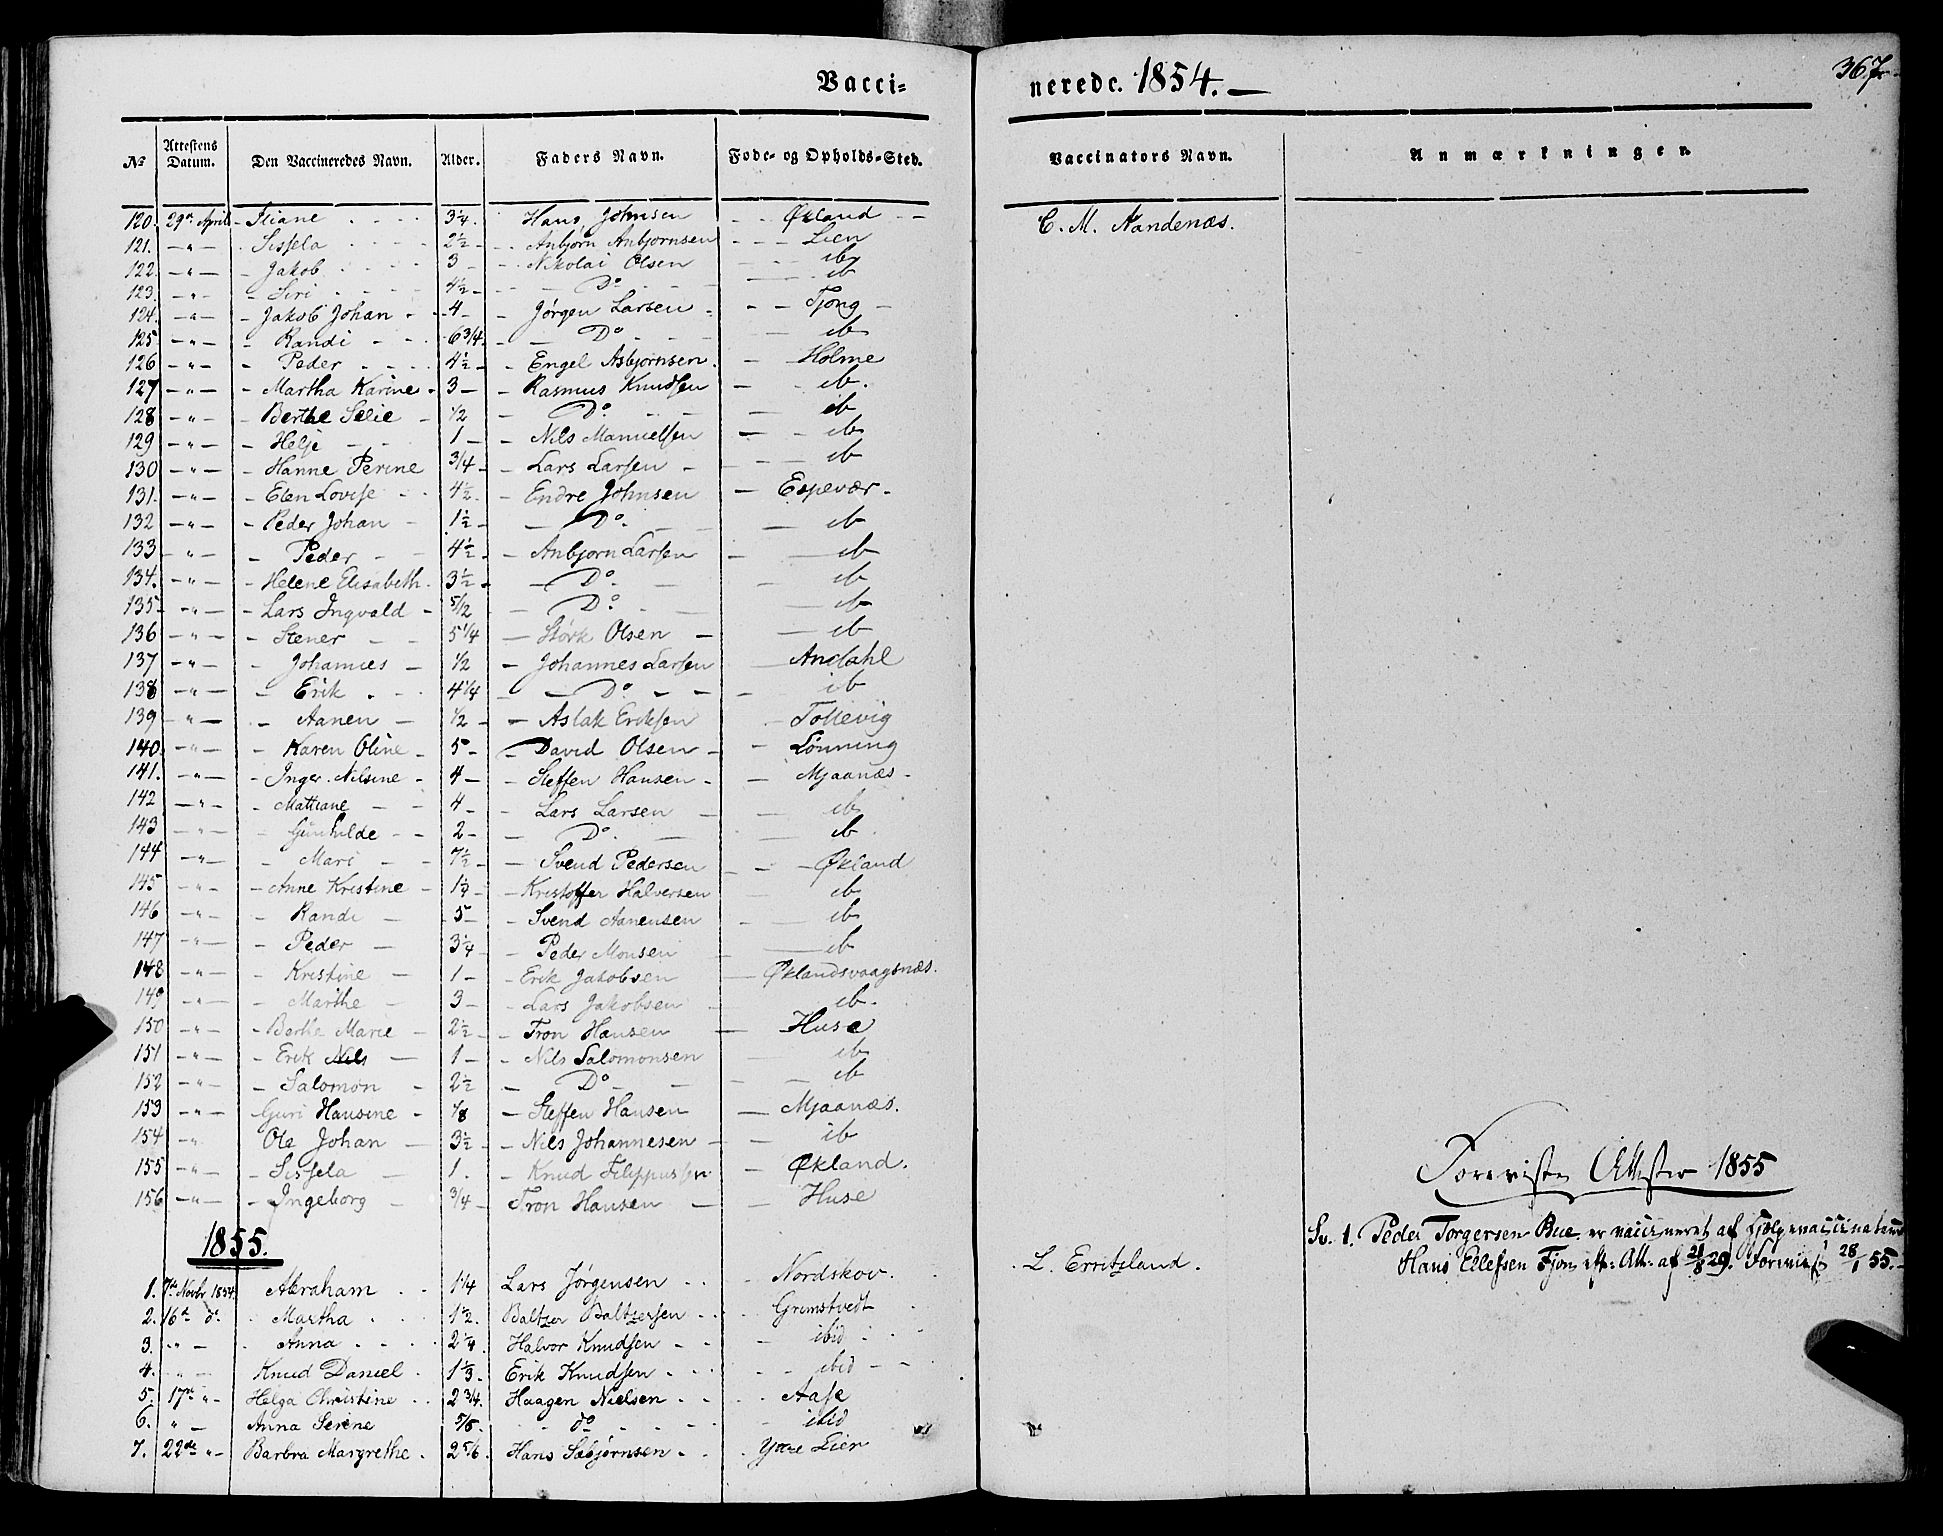 Vacci= neredc. 1854.
367
No Attestens Datum. Den Vaccineredes Navn. Alder. Faders Navn. Føde- og Opholds-Sted. Vaccinators Navn. Anmærkninger.
120. 29de April - Iliane 3 1/4. Hans Johnsen - Økland - C. M. Nandenæs.
121. - " - Sissela 2 1/2 - Anbjørn Anbjørnsen - Lien
122. - " - Jakob 3 - Nikolai Olsen - ib
123. - " - Siri 4 1/2 - Do - ib
124. - " - Jakob Johan - 4 - Jørgen Larsen - Tjong -
125 - " - Randi - 6 3/4. - Do - ib
126 - " - Peder 4 1/2 - Engel Asbjørnsen. - Holme
127 - " - Martha Karine - 3 - Rasmus Knudsen - ib.
128 - " - Berthe Selie - 1/2 - Do. - ib
129 - " - Helje - 1 - Nils Manuelsen - ib
130 - " - Hanne Perine 3/4 - Lars Larsen - ib
131. - " - Elen Lovise - 4 1/2. - Endre Johnsen - Espevær.
132 - " - Peder Johan - 1 1/2 - Do. - ib
133 - " - Peder - 4 1/2 - Anbjørn Larsen - ib
134. - " - Helene Elisabeth. 3 1/2 - Do. - ib
135 - " - Lars Ingvald - 5/2 - Do. - ib
136 - " - Stener - 5 1/4 - Størk Olsen - ib
137 - " - Johannes - 1/2 - Johannes Larsen - Andahl
138 - " - Erik - 4 1/4 - Do - ib
139 - " - Aanen - 1/2 - Aslak Eriksen - Tollevig
140. - " - Karen Oline - 5 - David Olsen - Lønning
141. - " - Inger. Nilsine - 4 - Steffen Hansen - Mjaanæs -
142 - " - Mattiane - 4 - Lars Larsen - ib
143 - " - Gunhilde - 2 - Do. - ib
144 - " - Mari - 7 1/2 - Svend Pedersen - Økland
145 - " - Anne Kristine - 1 1/2 - Kristoffer Halversen - ib
146 - " - Randi - 5 - Svend Aanensen - ib
147 - " - Peder - 3 1/4 - Peder Monsen - ib
148 - " - Kristine - 1 - Erik Jakobsen - Øklandsvaagsnæs.
149 - " - Marthe - 3 - Lars Jakobsen - ib.
150 - " - Berthe Marie - 2 1/2 - Tron Hansen - Huse
151 - " - Erik Nils - 1 - Nils Salomonsen - ib
152 - " - Salomon - 2 1/2 - Do - ib
153 - " - Guri Hansine - 1/8 - Steffen Hansen - Mjaanæs.
154 - " Ole Johan - 3 1/2 - Nils Johannesen - ib
155 - " - Sissela - 1. - Knud Filippussen - Økland.
156 - " - Ingeborg - 3/4 - Tron Hansen - Huse
Foreviste Attester 1855
Sv. 1. Peder Torgersen Bue er vaccineret af Hjælpevaccinateur
Hans Ellefsen Fjon eft: Att: af 21/8 29. Foreviist 28/1 55.
1855.
1. 7de Novbr 1854. Abraham 1 1/4 Lars Jørgensen - Nordskov. L. Erritzland.
2. 16de do. Martha 1 1/2. Baltzer Baltzersen - Grimstvedt
3. " - Anna 2 1/4. Halvor Knudsen - ibid
4. " - Knud Daniel 1 1/3. Erik Knudsen - ibid
5. 17de " - Helga Christine 2 3/4. Haagen Nielsen - Aase
6. " - Anna Serine 5/8. do - ibid
7. 22de " - Barbra Margrethe. 2 5/6. Hans Sæbjørnsen - Yttre Lien